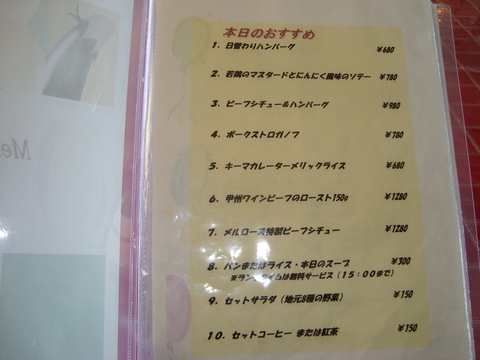 本日のおすすめ
1. 日替わりハンバーグ ¥680
2. 若鶏のマスタードとにんにく風味のソテー ¥780
3. ビーフシチュー&ハンバーグ ¥980
4. ポークストロガノフ ¥780
5. キーマカレーターメリックライス ¥680
6. 甲州ワインビーフのロースト150g ¥1280
7. メルローズ特製ビーフシチュー ¥1280
8. パンまたはライス・本日のスープ ¥300
※ランチタイムは無料サービス(15:00まで)
9. セットサラダ(地元8種の野菜) ¥150
10. セットコーヒー または紅茶 ¥150